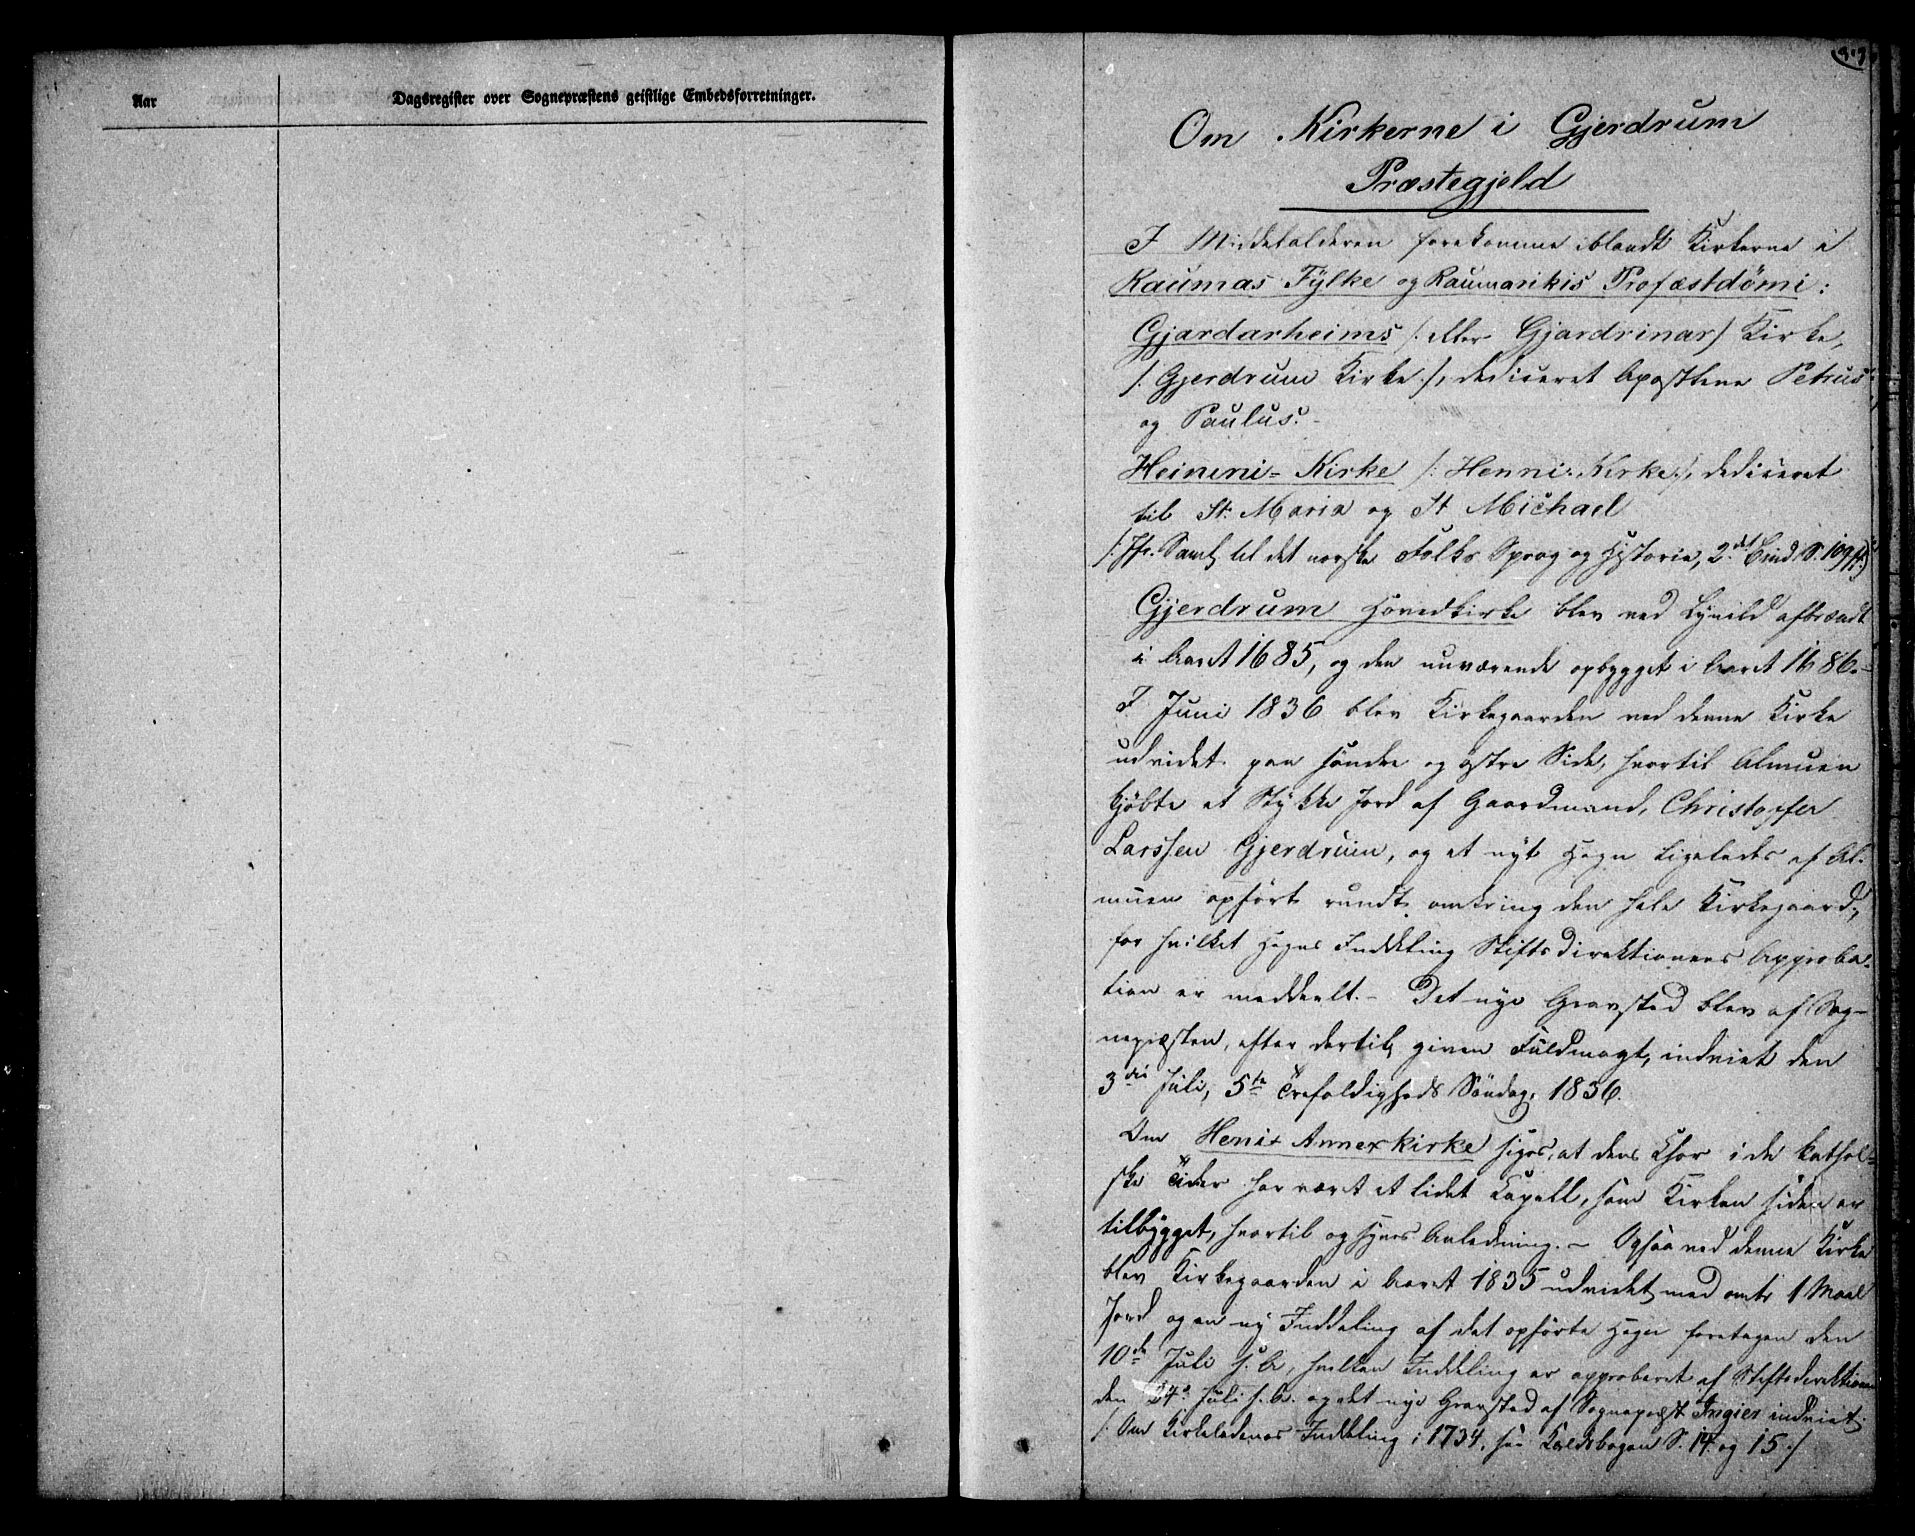 Aar
Dagsregister over Sognepræstens geistlige Embedsforretninger.
Om Kirkerne i Gjerdrum
Præstegjeld
I Middelalderen forekomme iblandt Kirkerne i
Raumas Fylke og Raumarikis Profæstdømi:
Gjardarheims /: eller Gjardrinar/ Kirke,
/: Gjerdrum Kirke :/, dediceret Apostlene Petrus
og Paulus.
Heineni-Kirke /: Henni-Kirke :/, dediceret
til St. Maria og St Michael
/: Jfr. Saml. til det norske Folks Sprog og Historie, 2det Bind S. 109 ff:/
Gjerdrum Hovedkirke blev ved Lynild afbrændt
i Aaret 1685, og den nuværende opbygget i Aaret 1686.-
I Juni 1836 blev Kirkegaarden ved denne Kirke
udvidet paa søndre og østre Side, hvortil Almuen
kjøbte et Stykke Jord af Gaardmand, Christopher
Larssen Gjerdrum, og et nyt Hegn ligeledes af Al-
muen opført rundt omkring den hele Kirkegaard,
for hvilket Hegns Inddeling Stiftsdirektionens Approba-
tion er meddeelt.- Det nye Gravsted blev af Sog-
nepræsten, efter dertil given Fuldmagt, indviet den
3die Juli, 5te Trefoldigheds Søndag, 1836.
Om Heni-Annexkirke siges, at dens Chor i de kathol-
ske Tider har været et lidet Capell, som Kirken siden er
tilbygget, hvortil og synes Anledning.- Ogsaa ved denne Kirke
blev Kirkegaarden i Aaret 1835 udvidet med omtr 1 Maal
Jord og en ny Inddeling af det opførte Hegn foretagen den
10de Juli s. A., hvilken Inddeling er approberet af Stiftsdirektionen
den 24de Juli s. A. og det nye Gravsted af Sognepræst Ingier indviet.
/: Om Kirkeladenes Inddeling i 1734, see Kaldsbogen S. 14 og 15 :/